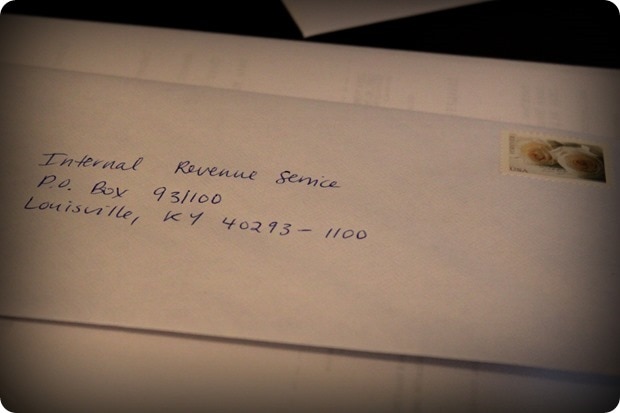 Internal Revenue Service
P.O. Box 931100
Louisville, KY 40293-1100